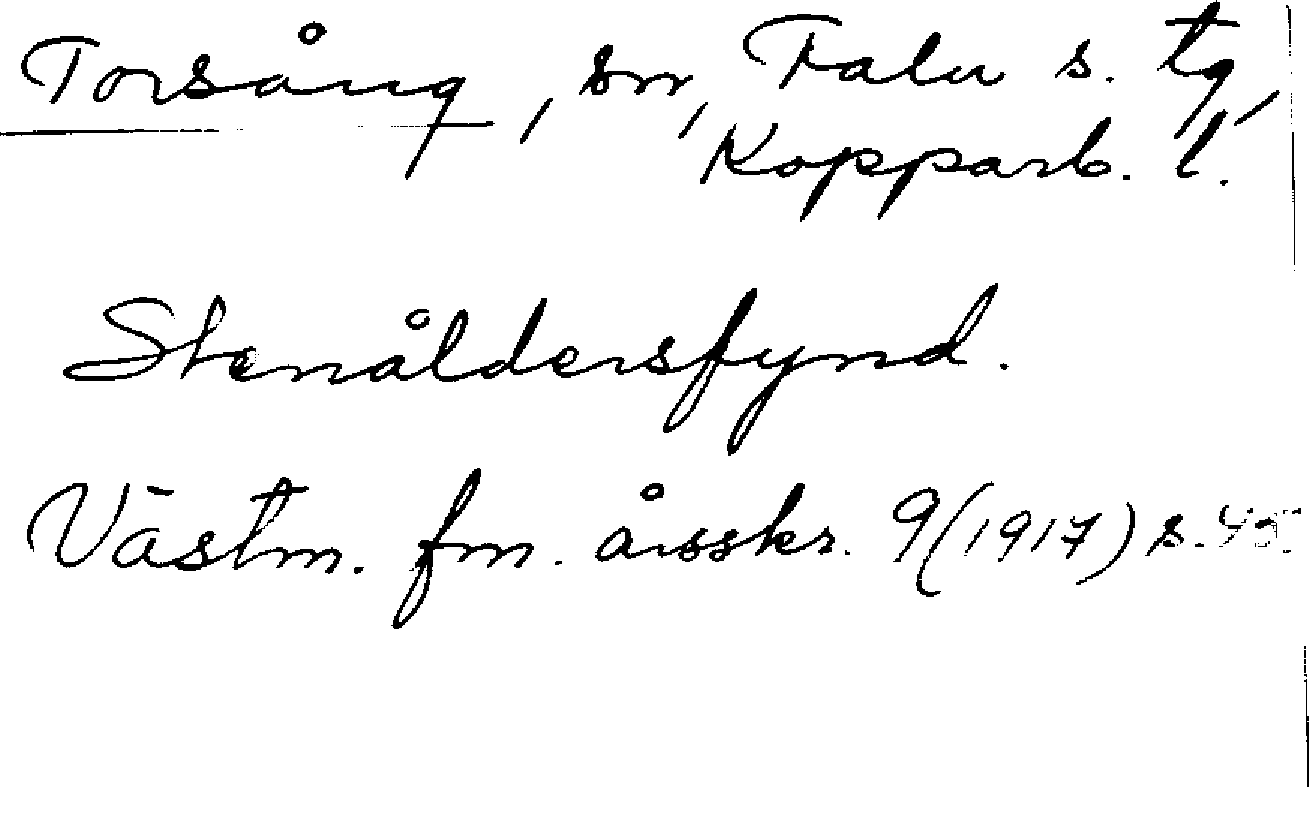 Torsång, sn, Falu s. tg,
Kopparb. l.
Stenåldersfynd.
Västm. fm. årsskr. 9(1917) s.